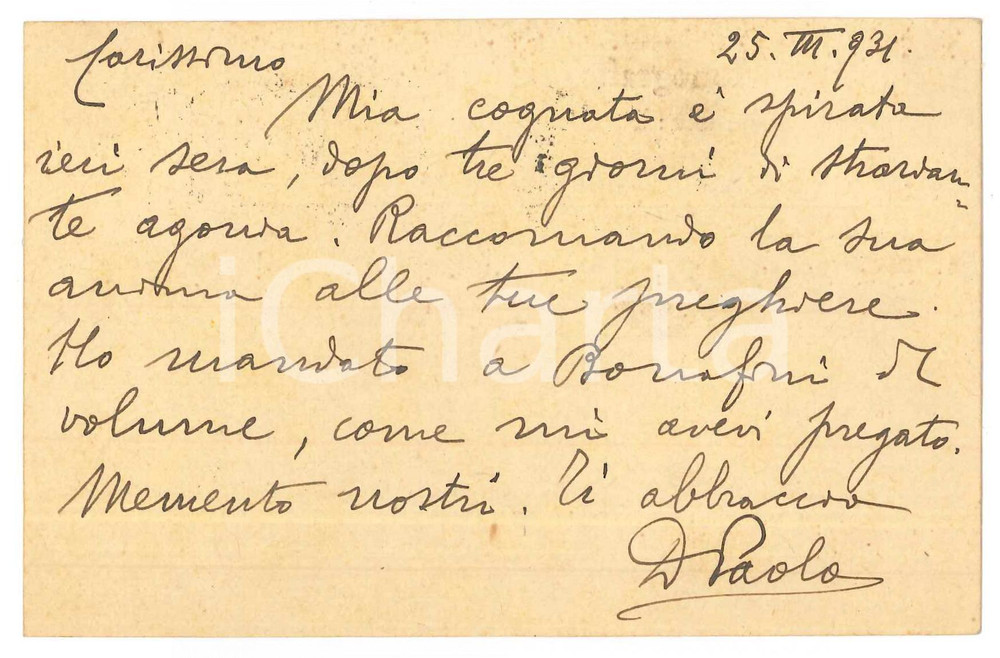 25. III. 931.
Carissimo
Mia cognata è spirata
ieri sera, dopo tre giorni di strazian=
te agonia. Raccomando la sua
anima alle tue preghiere.
Ho mandato a Bonafini il
volume, come mi avevi pregato.
Memento nostri. Ti abbraccio
D Paolo
iCharta